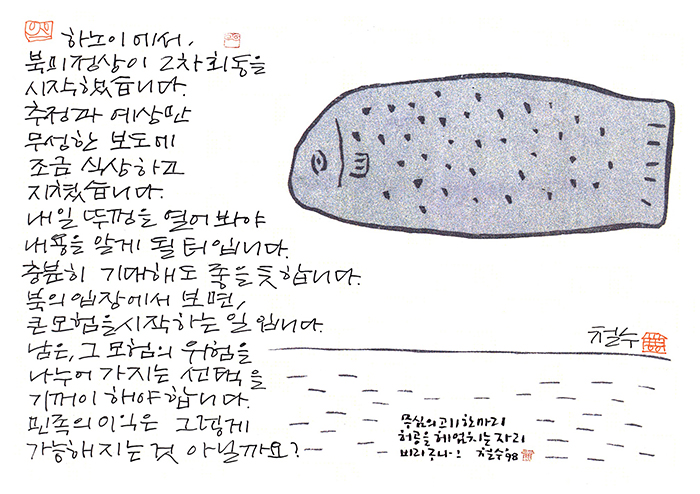 하노이에서,
북미정상이 2차회동을
시작했습니다.
추정과 예상만
무성한 보도에
조금 식상하고
지쳤습니다.
내일 뚜껑을 열어 봐야
내용을 알게 될 터입니다.
충분히 기대해도 좋을 듯합니다.
북의 입장에서 보면,
큰 모험을 시작하는 일입니다.
남은, 그 모험의 위험을
나누어 가지는 선택을
기꺼이 해야 합니다.
민족의 이익은 그렇게
가능해지는 것 아닐까요?
철수
무심의 고기 한마리
허공을 헤엄치는 자리
비리구나-! 철수98